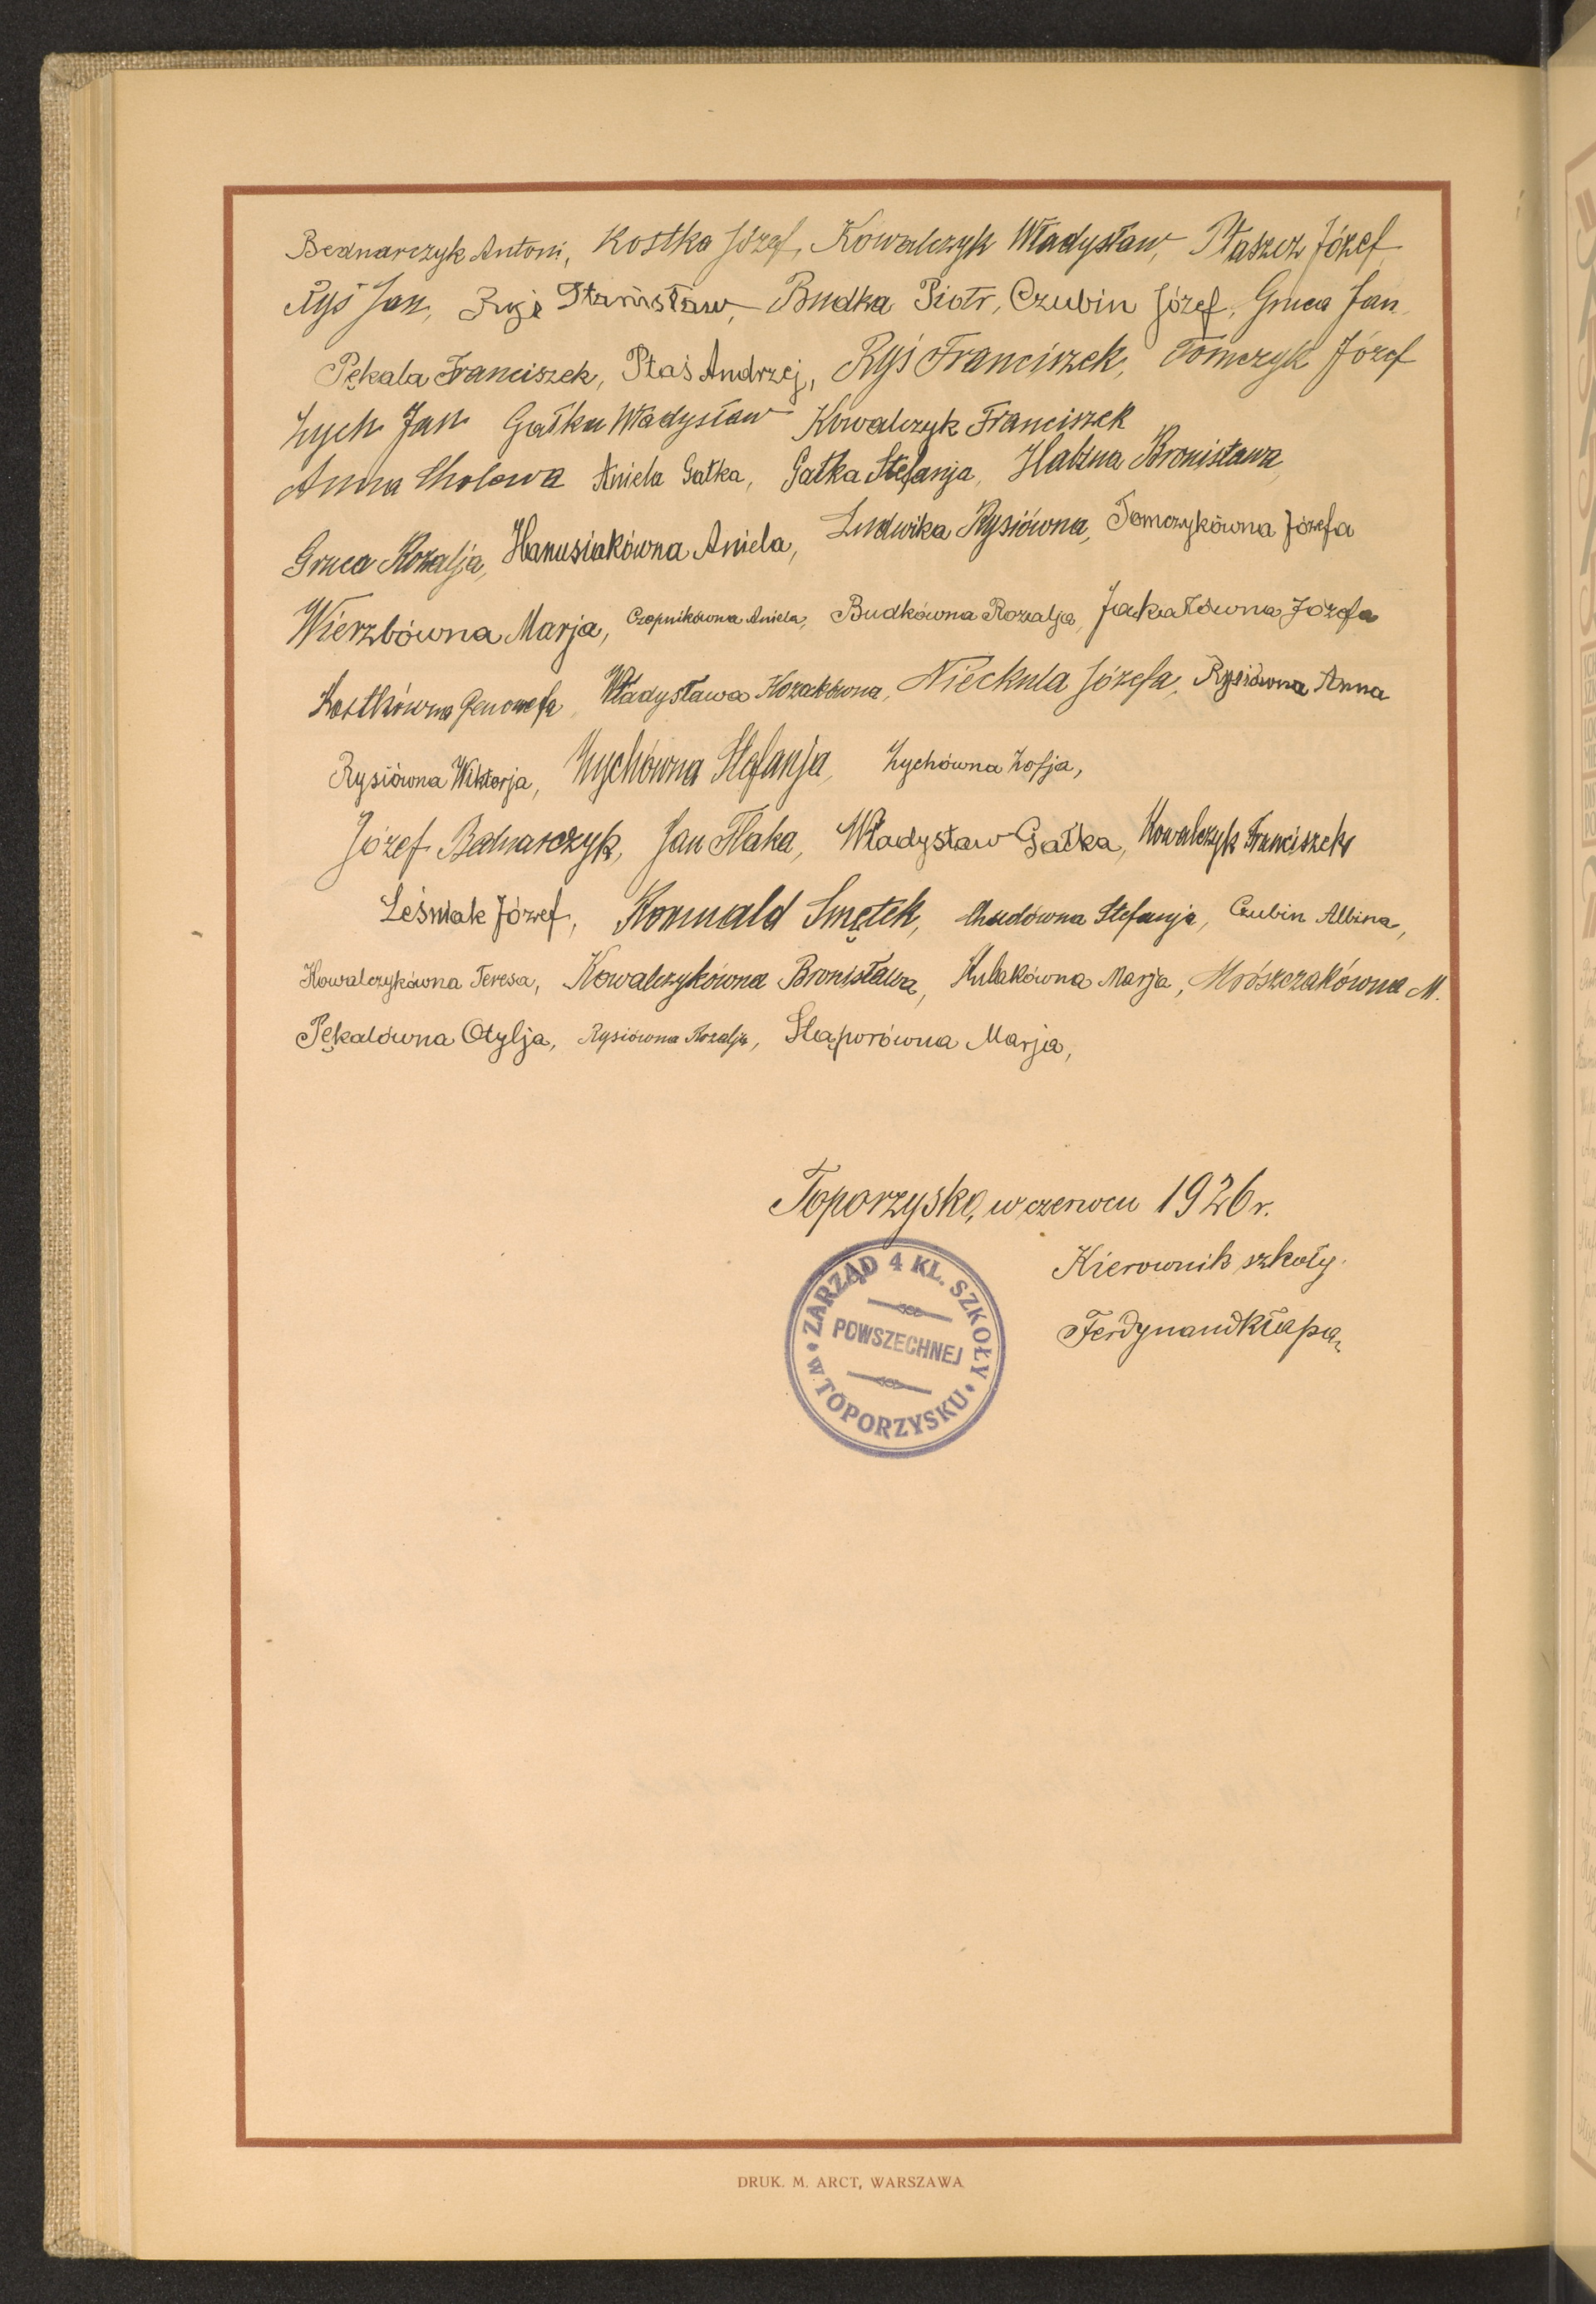 Bednarczyk Antoni, Kostka Józef, Kowalczyk Władysław, Ptaszek Józef
Ryś Jan, Ryś Stanisław, Budka Piotr, Czubin Józef, Gruca Jan,
Pękala Franciszek, Ptaś Andrzej, Ryś Franciszek, Tomczyk Józef
Zych Jan Gałka Władysław Kowalczyk Franciszek
Anna Cholewa Aniela Gałka, Gałka Stefanja, Halzna Bronisława,
Gruca Rozalja, Hanusiakówna Aniela, Ludwika Rysiówna, Tomczykówna Józefa
Wierzbówna Marja, Czopnikówna Aniela, Budkówna Rozalja, Józefa
Kostkówna Genowefa, Władysława Kozakówna, Nieckula Józefa, Rysiówna Anna
Rysiówna Wiktorja, Zychówna Stefanja, Zychówna Zofja,
Józef Bednarczyk, Jan Flaka, Władysław Gałka, Kowalczyk Franciszek
Leśniak Józef, Romuald Smętek, Chudówna Stefanja, Czubin Albina,
Kowalczykówna Teresa, Kowalczykówna Bronisława, Kulakówna Marja, Mrószczakówna M.
Pękalówna Otylja, Rysiówna Rozalja, Słąporówna Marja,
Toporzysko, w czerwcu 1926 r.
Kierownik szkoły
Ferdynand Kłapa
ZARZĄD 4 KL. SZKOŁY
POWSZECHNEJ
w TOPORZYSKU
DRUK. M. ARCT, WARSZAWA